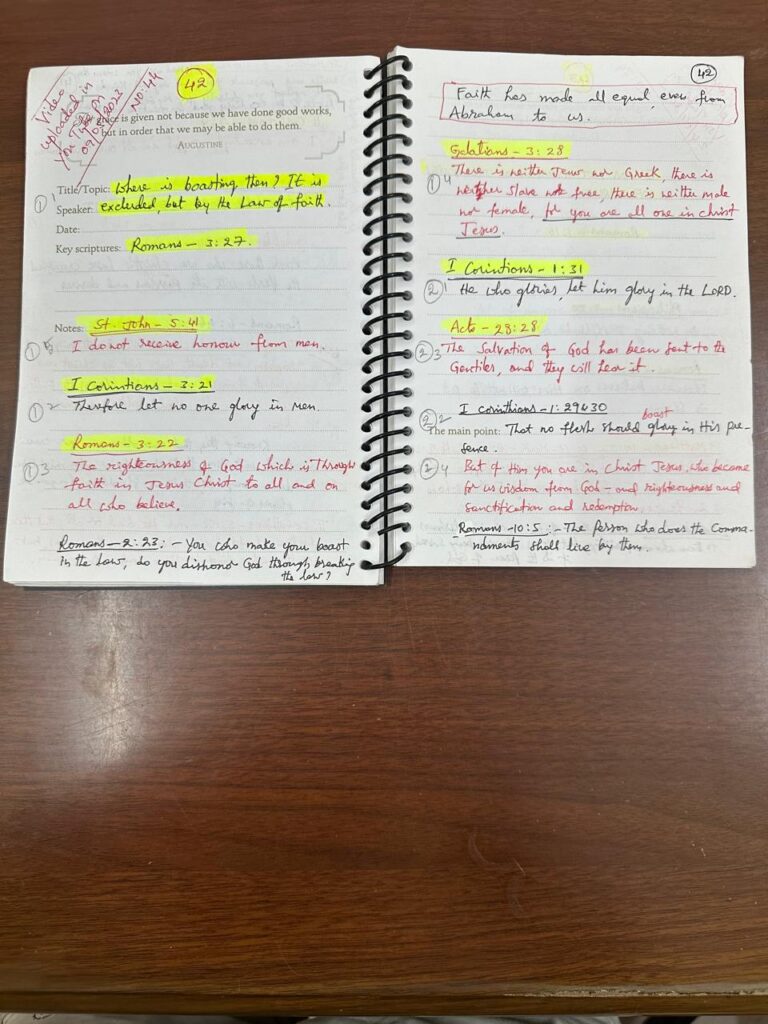 Video
uploaded in
You Tube on
NO:44
42
grace is given not because we have done good works,
but in order that we may be able to do them.
AUGUSTINE
Title/Topic: Where is boasting then? It is
Speaker: excluded, but by the Law of faith.
Date:
Key scriptures: Romans - 3:27.
Notes: St. John - 5:41
I do not receive honour from men.
I Corintians - 3:21
Therefore let no one glory in Men.
Romans - 3:22
The righteousness of God which is through
faith in Jesus Christ to all and on
all who believe.
Romans - 2:23 :- You who make your boast
in the Law, do you dishonor God through breaking
the law?
42
Faith has made all equal, even from
Abraham to us.
Galatians - 3:28
There is neither Jew nor Greek, there is
neither slave nor free, there is neither male
nor female, for you are all one in Christ
Jesus.
I Corintians - 1:31
He who glories, let him glory in the LORD.
Acts - 28:28
The Salvation of God has been sent to the
Gentiles, and they will hear it.
I Corinthians - 1:29&30
boast
The main point: That no flesh should glory in His pre-
sence.
But of Him you are in Christ Jesus, who became
for us wisdom from God - and righteousness and
sanctification and redemption.
Romans - 10:5 :- The person who does the Comma-
ndments shall live by them.